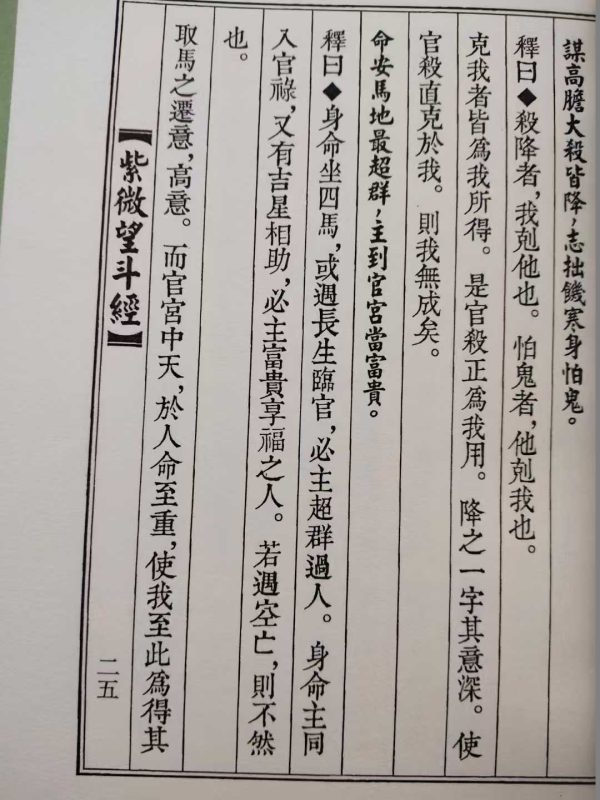 謀高膽大殺皆降，志拙饑寒身怕鬼。
釋曰◆殺降者，我剋他也。怕鬼者，他剋我也。
克我者皆為我所得。是官殺正為我用。降之一字其意深。使
官殺直克於我。則我無成矣。
命安馬地最超群，主到官宮當富貴。
釋曰◆身命坐四馬，或遇長生臨官，必主超群過人。身命主同
入官祿，又有吉星相助，必主富貴享福之人。若遇空亡，則不然
也。
取馬之遷意，高意。而官宮中天，於人命至重，使我至此為得其
【紫微望斗經】
二五